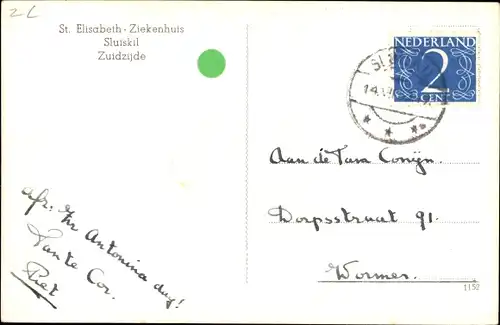 2L
St. Elisabeth - Ziekenhuis
Sluiskil
Zuidzijde
NEDERLAND
2
CENT
SL
14
Aan de Fam Conijn.
Dorpsstraat 91.
Wormer.
afz: Zr Antonina dag!
Tante Cor.
Piet
1152